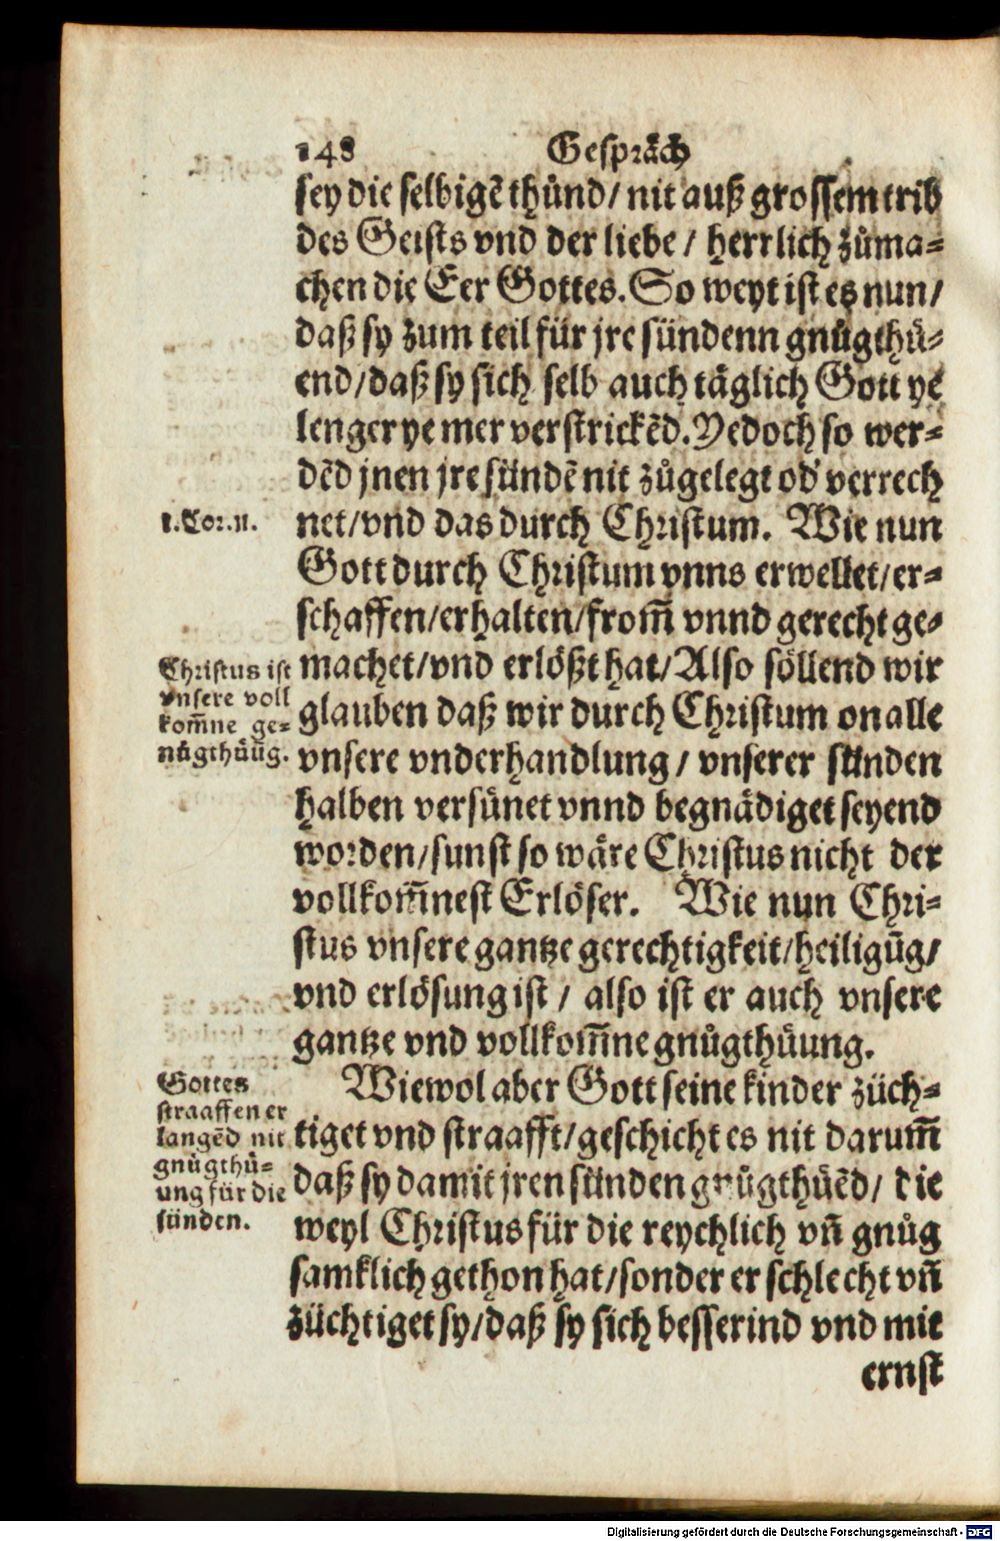 148 Gespräch
sey die selbigē thůnd/ nit auß grossem trib
des Geists vnd der liebe / herrlich zůma-
chen die Eer Gottes. So weyt ist es nun/
daß sy zum teil für jre sündenn gnůgthů-
end/daß sy sich selb auch täglich Gott ye
lenger ye mer verstrickēd. Yedoch so wer-
dēd jnen jre sündē nit zůgelegt od' verrech
1.Cor.11.
net/vnd das durch Christum. Wie nun
Gott durch Christum vnns erwellet/er-
schaffen/erhalten/from̄ vnnd gerecht ge-
Christus ist
vnsere voll
kom̄ne ge-
nůgthůūg.
machet/vnd erlößt hat/Also söllend wir
glauben daß wir durch Christum on alle
vnsere vnderhandlung / vnserer sünden
halben versünet vnnd begnädiget seyend
worden/sunst so wäre Christus nicht der
vollkom̄nest Erlöser. Wie nun Chri-
stus vnsere gantze gerechtigkeit/heiligūg/
vnd erlösung ist / also ist er auch vnsere
gantze vnd vollkom̄ne gnůgthůung.
Gottes
straaffen er
langēd nit
gnůgthů-
ung für die
sünden.
Wiewol aber Gott seine kinder züch-
tiget vnd straafft/geschicht es nit darum̄
daß sy damit jren sünden gnůgthůēd/ die
weyl Christus für die reychlich vn̄ gnůg
samklich gethon hat/sonder er schlecht vn̄
züchtiget sy/daß sy sich besserind vnd mit
ernst
Digitalisierung gefördert durch die Deutsche Forschungsgemeinschaft - DFG